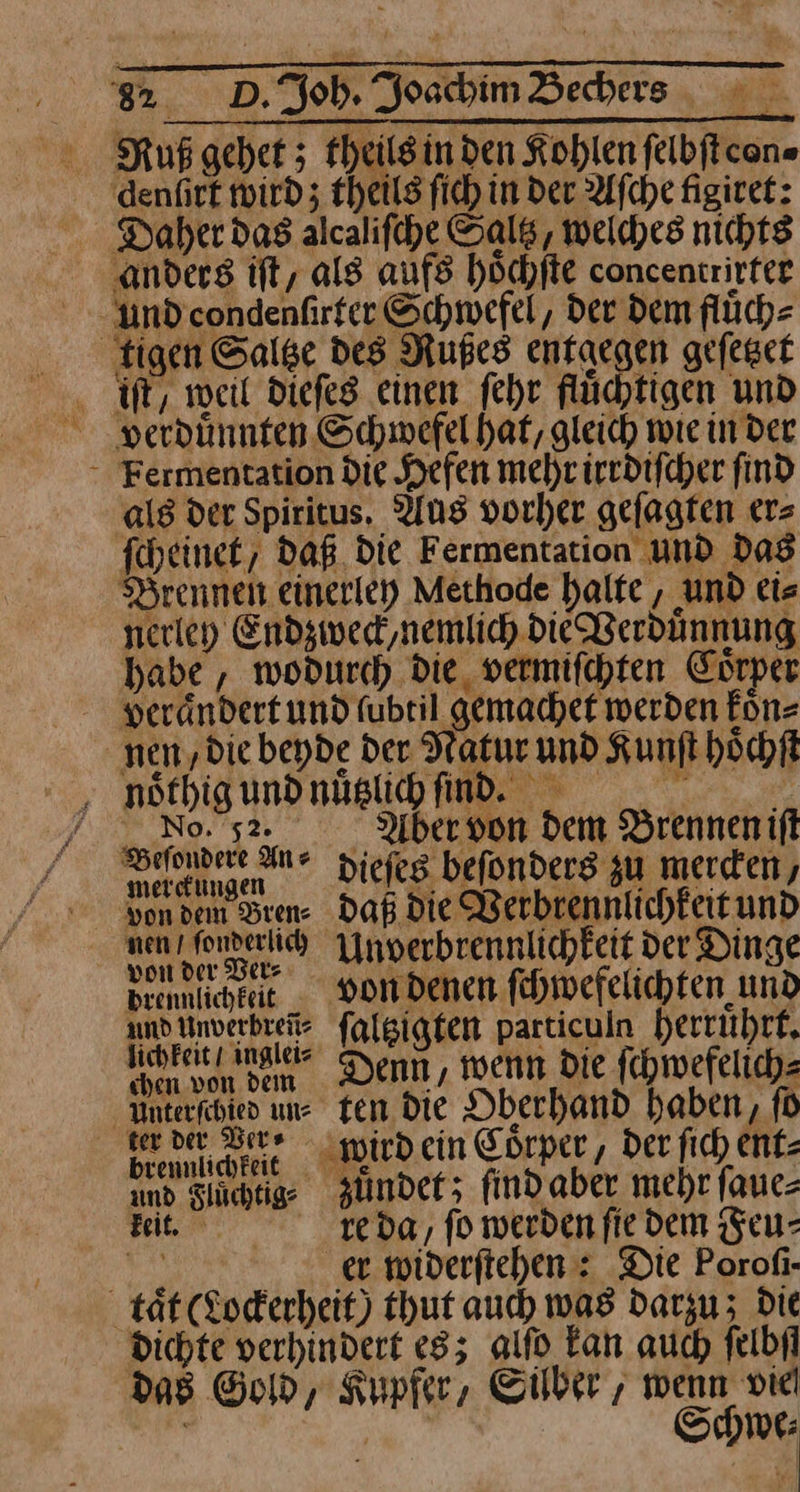 82 D. Joh. Joachim Bechers
Ruß gehet; theils in den Kohlen ſelbſt con⸗
denſirt wird; theils ſich in der Aſche figiret:
Daher das alcaliſche Saltz, welches nichts
anders iſt, als aufs hoͤchſte concentrirter
und condenſirter Schwefel, der dem fluͤch⸗
tigen Saltze des Rußes entgegen geſetzet
iſt, weil dieſes einen ſehr fluͤchtigen und
verduͤnnten Schwefel hat, gleich wie in der
Fermentation die Hefen mehr irrdiſcher ſind
als der Spiritus. Aus vorher geſagten er⸗
ſcheinet, daß die Fermentation und das
Brennen einerley Methode halte, und ei⸗
nerley Endzweck, nemlich die Verduͤnnung
habe, wodurch die vermiſchten Coͤrper
veraͤndert und ſubtil gemachet werden koͤn⸗
nen, die beyde der Natur und Kunſt hoͤchſt
noͤthig und nuͤtzlich ſind.
No. 52.
Beſondere An⸗
merckungen
von dem Bren⸗
nen / ſonderlich
von der Ver⸗
brennlichkeit
und Unverbreñ⸗
lichkeit / inglei⸗
chen von dem
Unterſchied un⸗
ter der Ver⸗
brennlichkeit
und Fluͤchtig⸗
keit.
Aber von dem Brennen iſt
dieſes beſonders zu mercken,
daß die Verbrennlichkeit und
Unverbrennlichkeit der Dinge
von denen ſchwefelichten und
ſaltzigten particuln herruͤhrt.
Denn, wenn die ſchwefelich⸗
ten die Oberhand haben, ſo
wird ein Coͤrper, der ſich ent⸗
zuͤndet; ſind aber mehr ſaue⸗
re da, ſo werden ſie dem Feu⸗
er widerſtehen: Die Poroſi-
taͤt (Lockerheit) thut auch was darzu; die
dichte verhindert es; alſo kan auch ſelbſt
das Gold, Kupfer, Silber, wenn viel
Schwe⸗